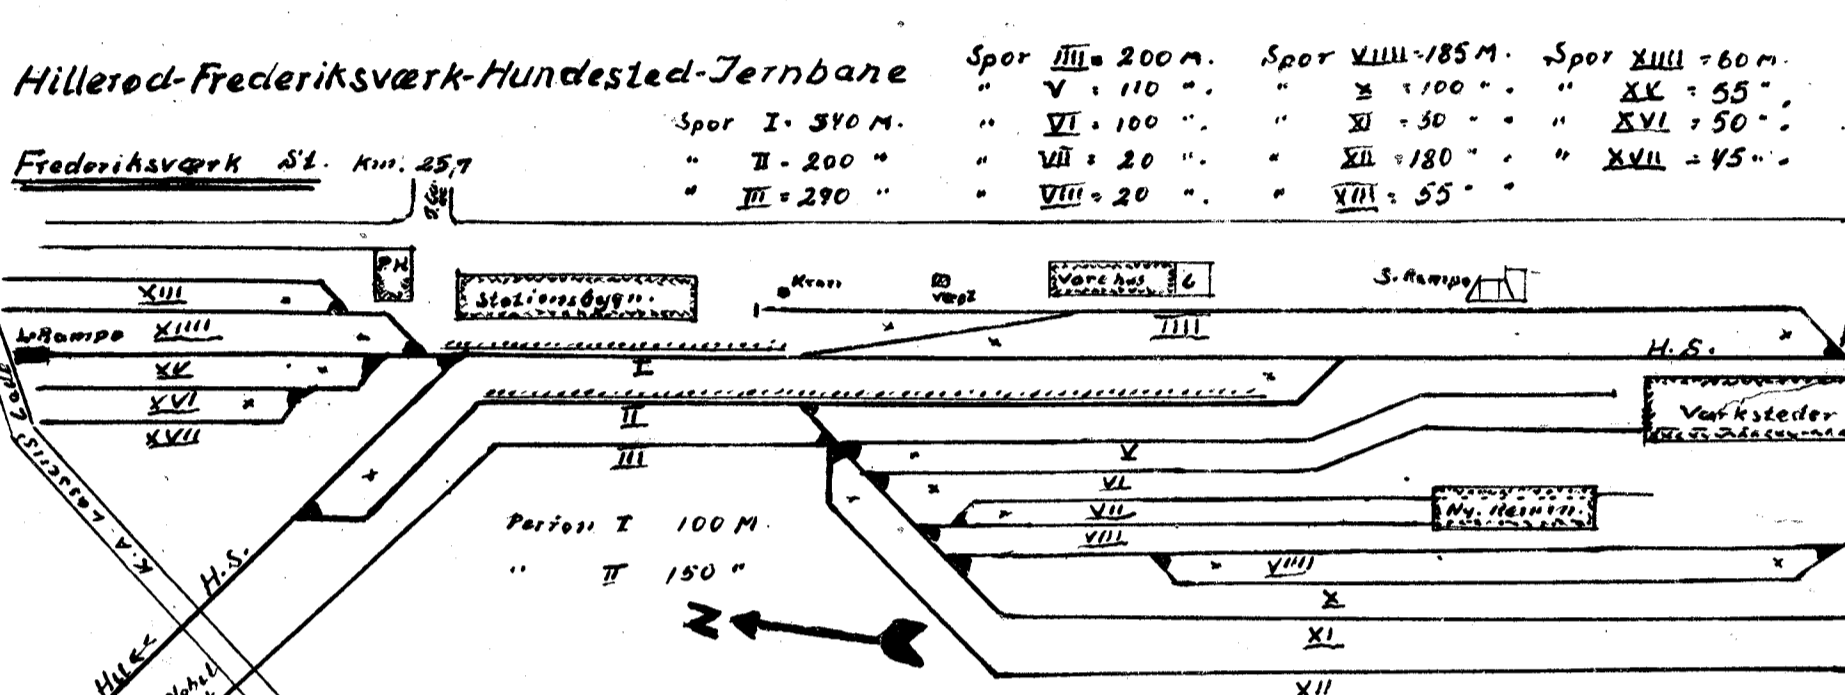 Hillerød-Frederiksværk-Hundested-Jernbane
Frederiksværk St. Km. 25,7
Spor I = 340 M.
" II = 200 "
" III = 290 "
Spor IIII = 200 M.
" V = 110 " .
" VI = 100 " .
" VII = 20 " .
" VIII = 20 " .
Spor VIIII = 185 M.
" X = 100 " .
" XI = 30 " "
" XII = 180 " .
" XIII = 55 " "
Spor XIIII = 60 M.
" XV = 55 " .
" XVI = 50 " .
" XVII = 45 " .
P.H.
Stationsbygn.
Kran
Vægt
Varehus
S. Rampe
XIII
XIIII
Rampe
XV
XVI
XVII
I
II
III
IIII
H.S.
Værksteder
V
VI
VII
VIII
VIIII
X
XI
XII
Perron I 100 M.
" II 150 "
K.A. Lassens Gade
H.S.
N